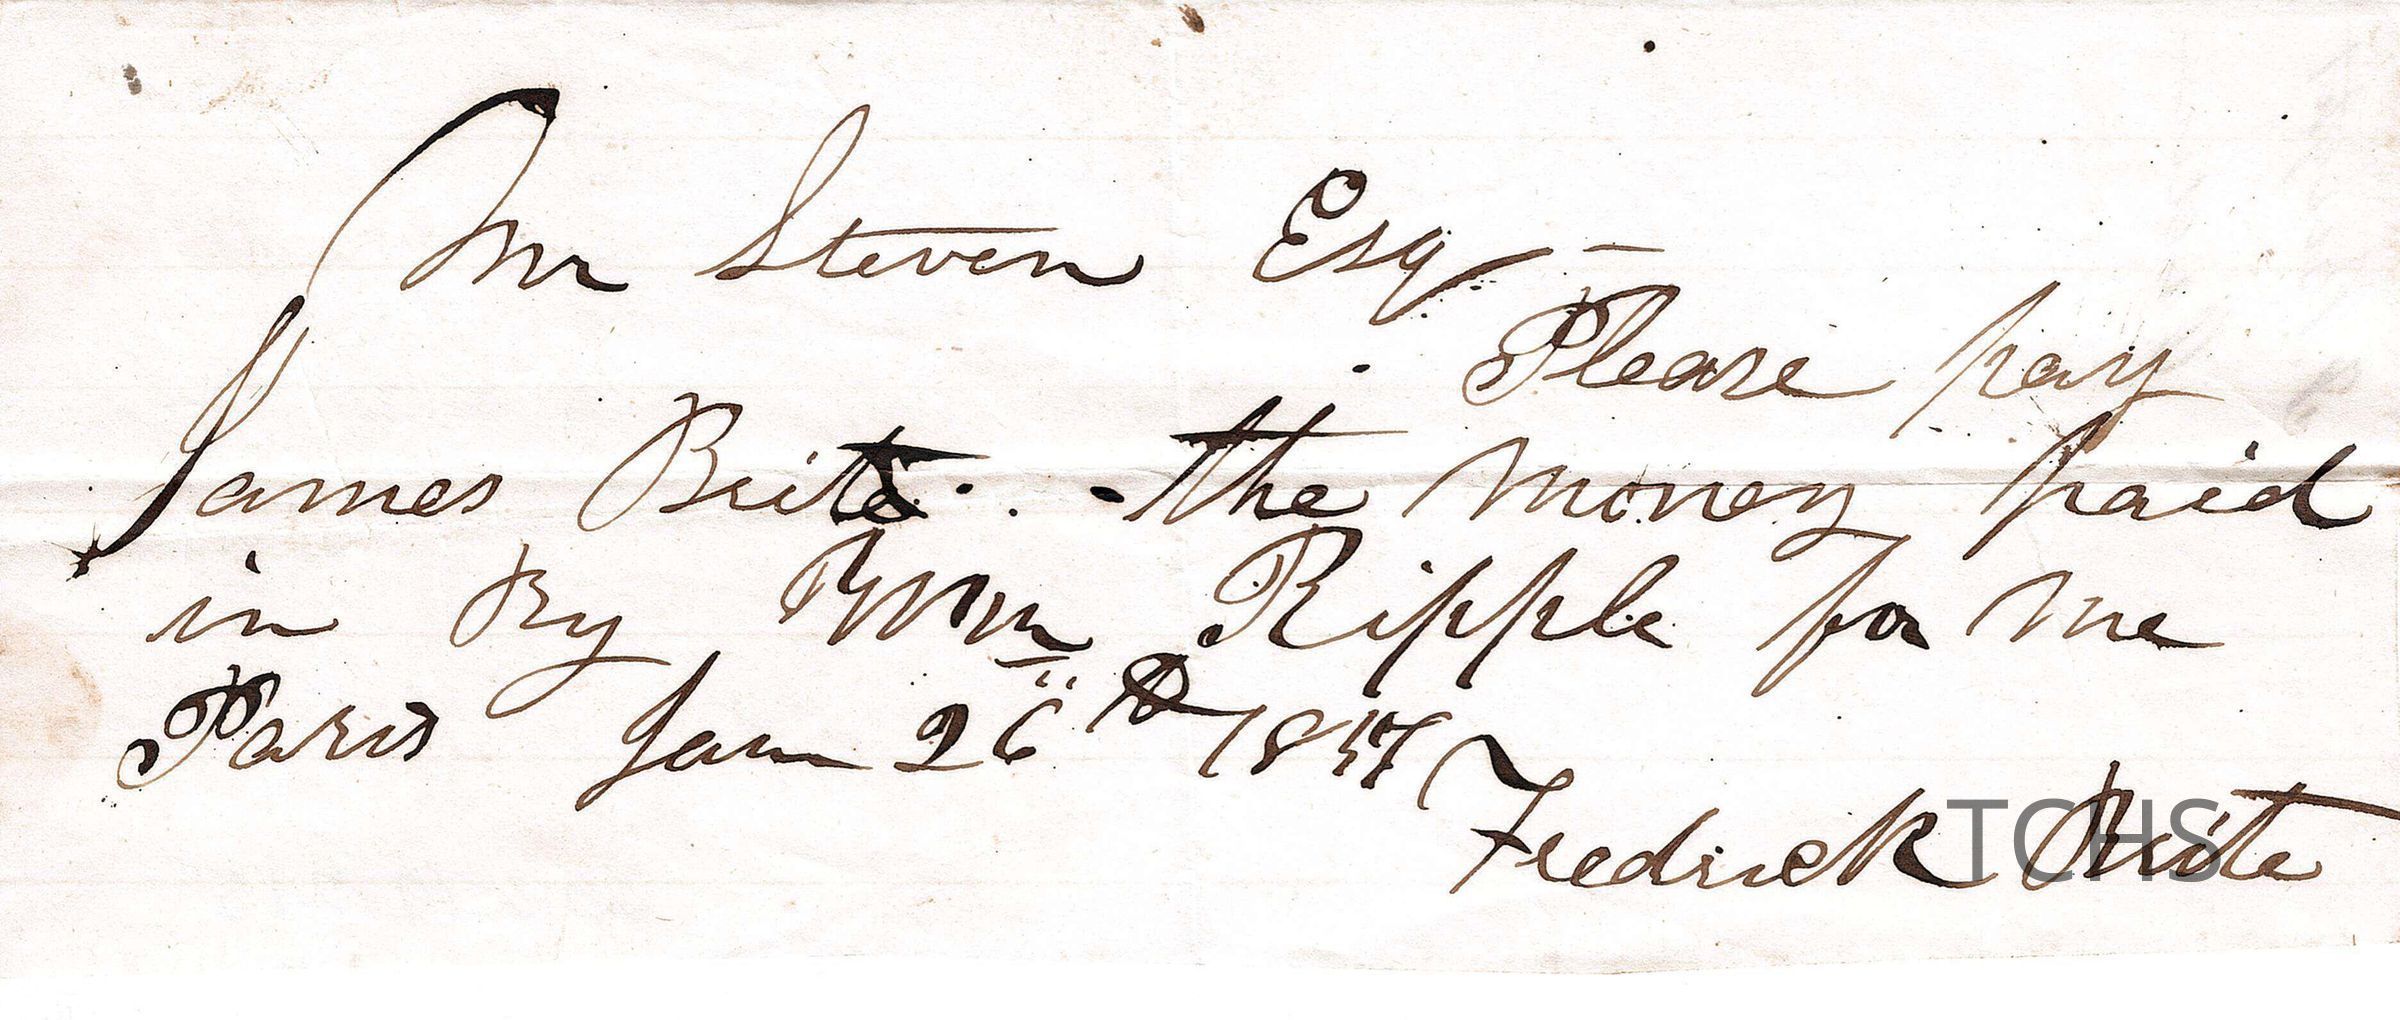 Mr Steven Esq –
Please pay
James Brite . . the money paid
in By Wm Ripple for me
Paris Jan 26th 1857
Fredrick Brite
TCHS